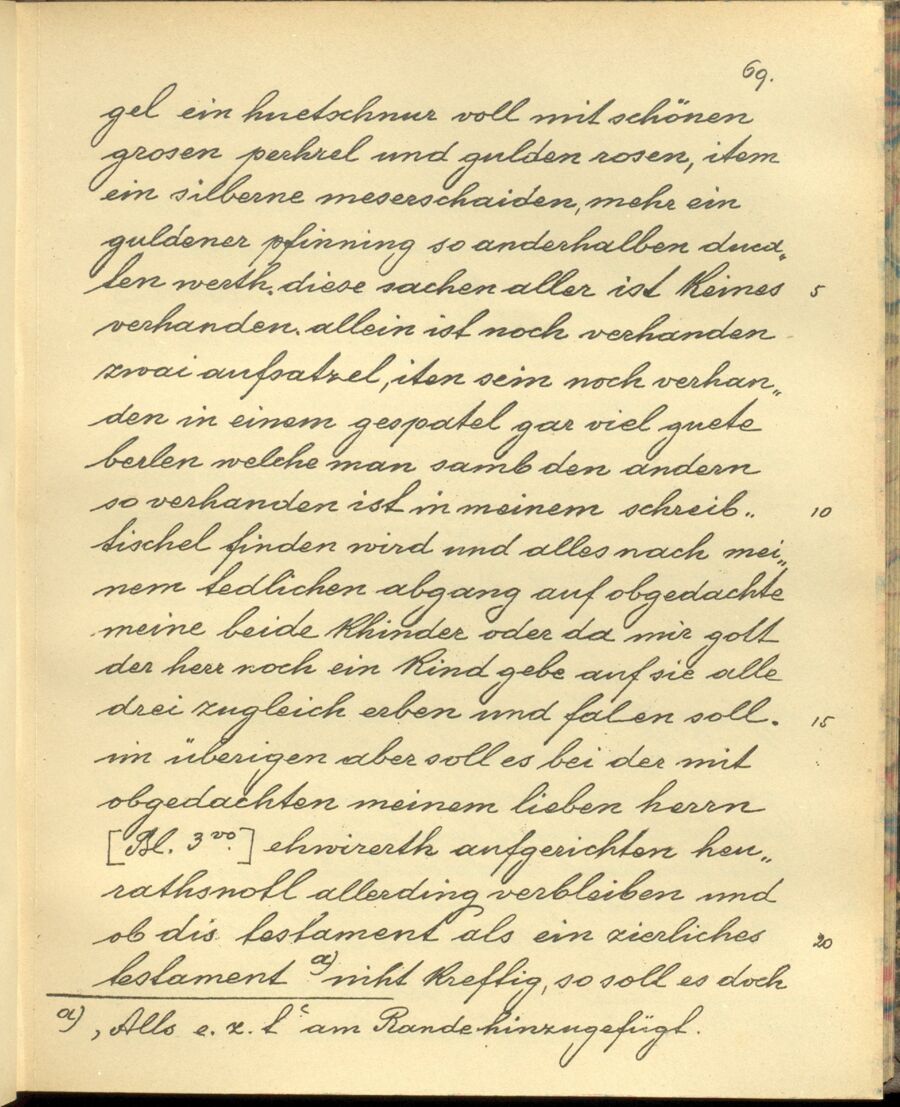 69.
gel ein huetschnur voll mit schönen
grosen perhrel und gulden rosen, item
ein silberne meserschaiden, mehr ein
guldener pfinning so anderhalben duca„
ten werth. diese sachen aller ist keines 5
verhanden. allein ist noch verhanden
zwai aufsatzel, iten sein noch verhan„
den in einem gespatel gar viel guete
berlen welche man samb den andern
so verhanden ist in meinem schreib„ 10
tischel finden wird und alles nach mei„
nem tedlichen abgang auf obgedachte
meine beide khinder oder da mir gott
der herr noch ein kind gebe auf sie alle
drei zugleich erben und falen soll. 15
im überigen aber soll es bei der mit
obgedachten meinem lieben herrn
[Bl. 3 vo.] ehwirerth aufgerichten heu„
rathsnotl allerding verbleiben und
ob dis testament als ein zierliches 20
testament a) niht kreftig, so soll es doch
a) ‚Alls e. z. t‘ am Rande hinzugefügt.